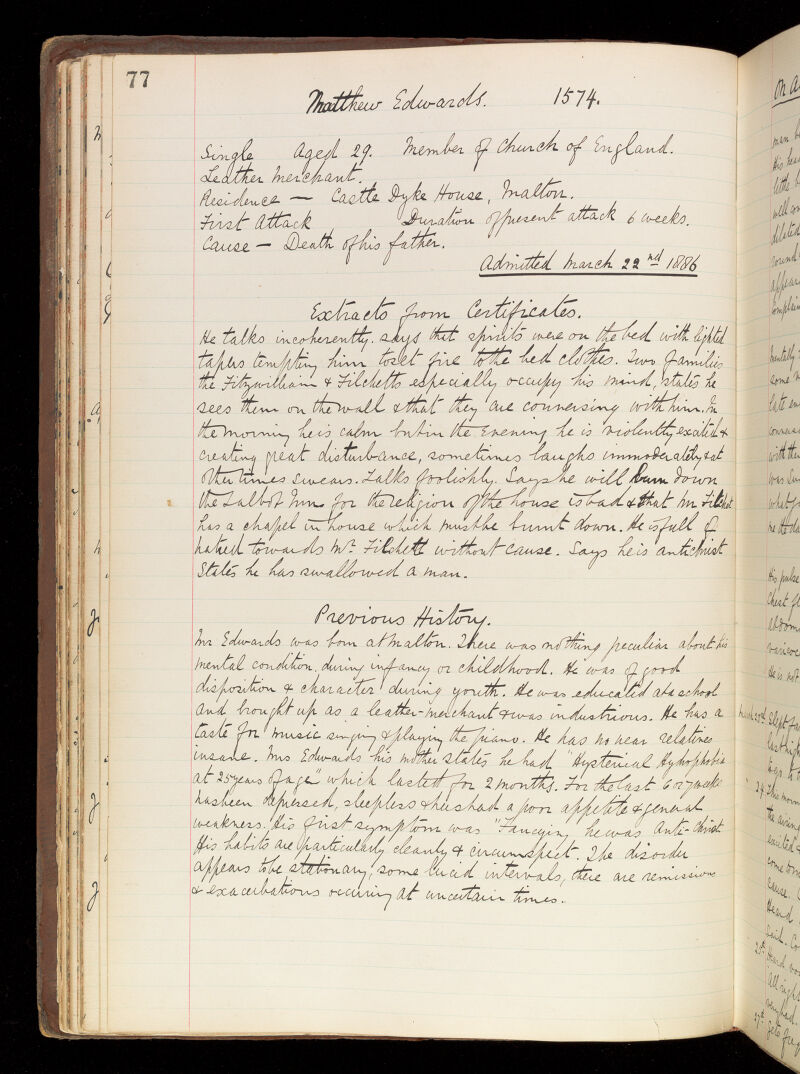 77
Matthew Edwards. 1574.
Single Aged 29. Member of Church of England.
Leather Merchant.
Residence — Castle Dyke House, Malton.
First Attack Duration of present attack 6 weeks.
Cause — Death of his father.
Admitted March 22nd 1886
Extracts from Certificates.
He talks incoherently. says that spirits were on the bed with lighted
tapers tempting him to set fire to the bed clothes. Two families
the Fitzwilliam & Filchetts especially occupy his mind, states he
sees them on the wall & that they are conversing with him. In
the morning he is calm but in the Evening he is violently excited &
creating great disturbance, sometimes laughs immoderately & at
other times swears. Talks foolishly. Says he will burn down
the Talbot Inn for the religion of the house is bad & that Mr Filchett
has a chapel in house which must be burnt down. He is full of
hatred towards Mr. Filchett without cause. Says he is antichrist
States he has swallowed a man.
Previous History.
Mr Edwards was born at Malton. There was nothing peculiar about his
mental condition, during infancy or childhood. He was of good
disposition & character during youth. He was educated at a school
and brought up as a leather-merchant & was industrious. He has a
taste for music singing & playing the piano. He has no near relatives
insane. Mrs Edwards his mother states he had "Hysterical Hydrophobia
at 25 years of age" which lasted for 2 months. For the last 6 or 7 weeks
has been depressed, sleepless & has had a poor appetite & general
weakness. His first symptom was "Fancying he was Anti-Christ
His habits are particularly cleanly & circumspect. The disorder
appears to be stationary, some lucid intervals, there are remissions
& exacerbations occuring at uncertain times.